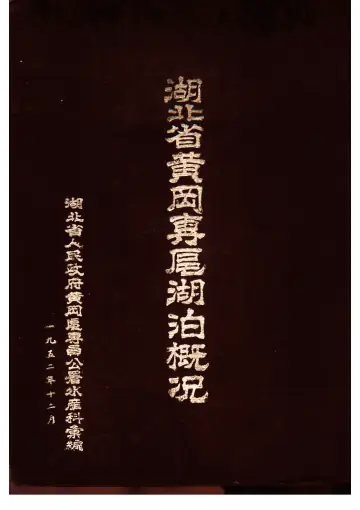 湖北省黄冈専区湖泊概况
湖北省人民政府黄冈區專員公署水産科彙編
一九五二年十二月